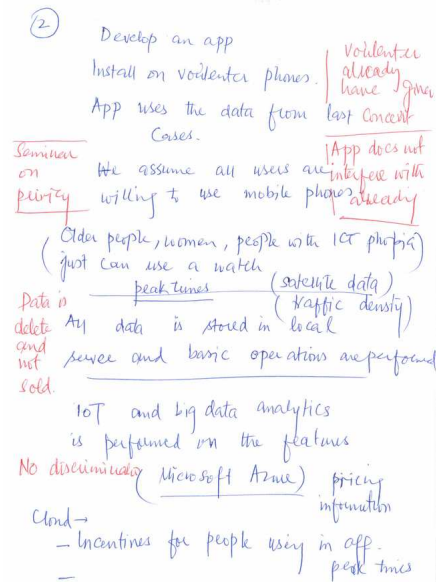 ②
Develop an app
Install on voulenter phones.
voulenter
already
have given
Concent
App uses the data from last
Cases.
Seminar
on
privicy
App does not
interfere with
already
We assume all users are
willing to use mobile phones
(Older people, women, people with ICT phopia)
just can use a watch
peak times (satelite data)
(traffic densty)
Data is
delete
and
not
sold.
All data is stored in local
server and basic operations are performed
IoT and big data analytics
is performed on the features
No discriminatio
(Microsoft Azure) pricing
information
Cloud →
- Incentines for people using in off-
peak times
-